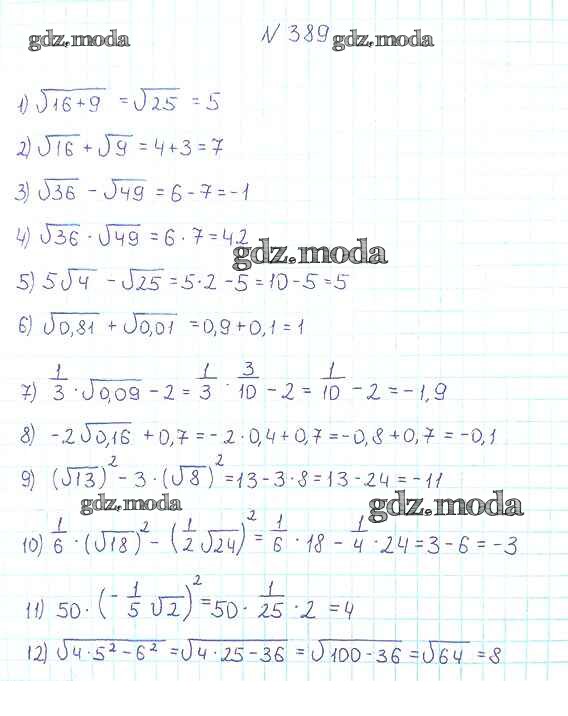 gdz.moda N 389 gdz.moda
1) √16+9 = √25 = 5
2) √16 + √9 = 4+3 = 7
3) √36 − √49 = 6 − 7 = −1
4) √36 · √49 = 6 · 7 = 42
gdz.moda
5) 5√4 − √25 = 5·2 − 5 = 10 − 5 = 5
6) √0,81 + √0,01 = 0,9 + 0,1 = 1
7) 1/3 · √0,09 − 2 = 1/3 · 3/10 − 2 = 1/10 − 2 = −1,9
8) −2√0,16 + 0,7 = −2·0,4 + 0,7 = −0,8 + 0,7 = −0,1
9) (√13)² − 3·(√8)² = 13 − 3·8 = 13 − 24 = −11
gdz.moda gdz.moda
10) 1/6 · (√18)² − (1/2 √24)² = 1/6 · 18 − 1/4 · 24 = 3 − 6 = −3
11) 50 · (−1/5 √2)² = 50 · 1/25 · 2 = 4
12) √4·5² − 6² = √4·25 − 36 = √100 − 36 = √64 = 8